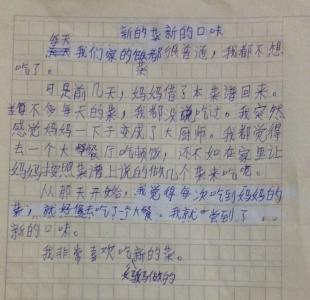 新的菜新的口味
每天我们家的菜都很普通，我都不想
吃了。
可是前几天，妈妈借了本菜谱回来。
差不多每天的菜，我都没吃过。我突然
感觉妈妈一下子变成了大厨师。我都觉得
去一个大餐厅吃顿饭，还不如在家里让
妈妈按照菜谱上说的做几个菜来吃呢。
从那天开始，我觉得每次吃到妈妈的
菜，就好像去吃了一个大餐。我就尝到了
新的口味。
我非常喜欢吃妈妈做的新的菜。